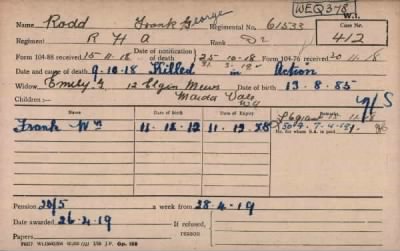 WEQ 378
Name Rodd Frank George Regimental No. 61533
W.1.
Case No.
412
Regiment R H A Rank Dr
Form 104-88 received 15-11-18 Date of notification of death 25-10-18 Form 104-76 received 20-11-18
Date and cause of death 9-10-18 Killed in Action
Widow Emily 12 Elgin Mews Date of birth 13.8.85
Maida Vale
Children:—
N/S
Name Date of Birth Date of Expiry Remarks
Frank Wm 11-12-12 11-12-28
No. for whom S.A. is paid
Pension 20/5 a week from 28-4-19
Date awarded 26-4-19
Papers